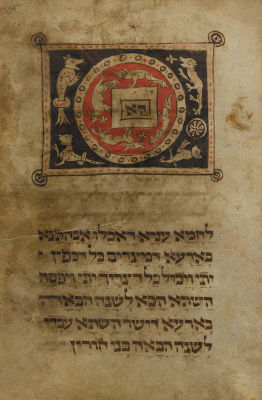 הא
לחמא עניא דאכלו אבהתנא
בארעא דמצרים כל דכפין
יתי ויכול כל דצריך יתי ויפסח
השתא הכא לשנה הבאה
בארעא דישר השתא עבדי
לשנה הבאה בני חורין